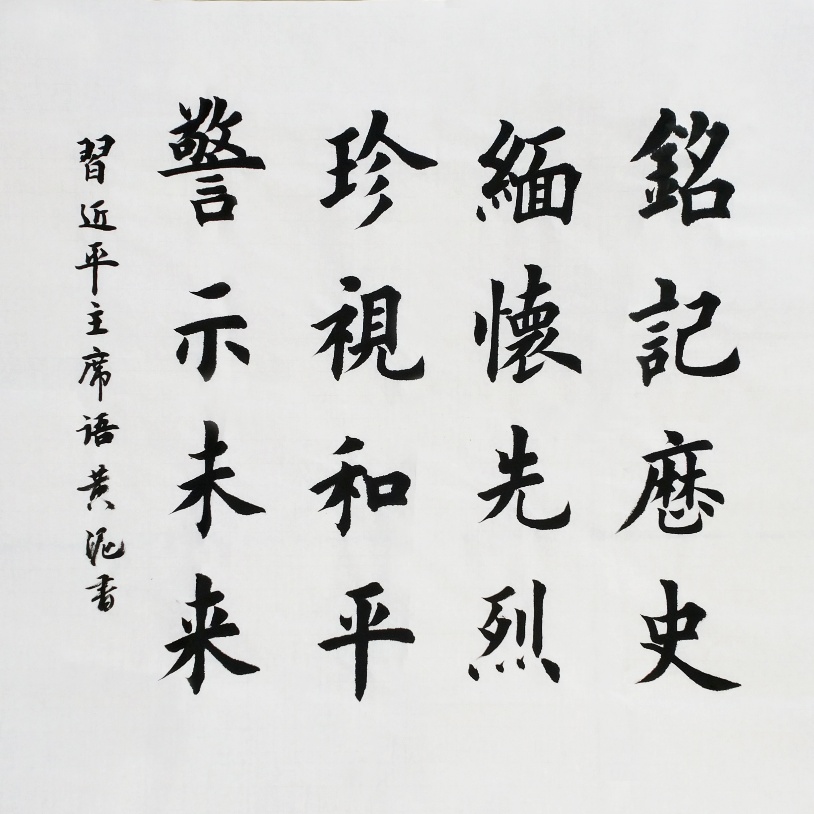 銘記歷史
緬懷先烈
珍視和平
警示未来
習近平主席语黄泥書